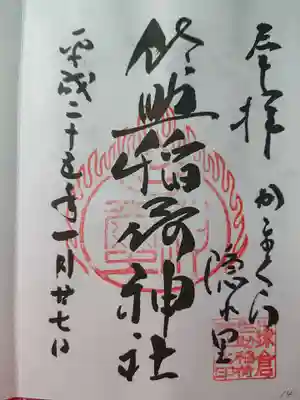 奉拝
かまくら
隠れ里
佐助稲荷神社
平成二十五年一月廿七日
鎌倉